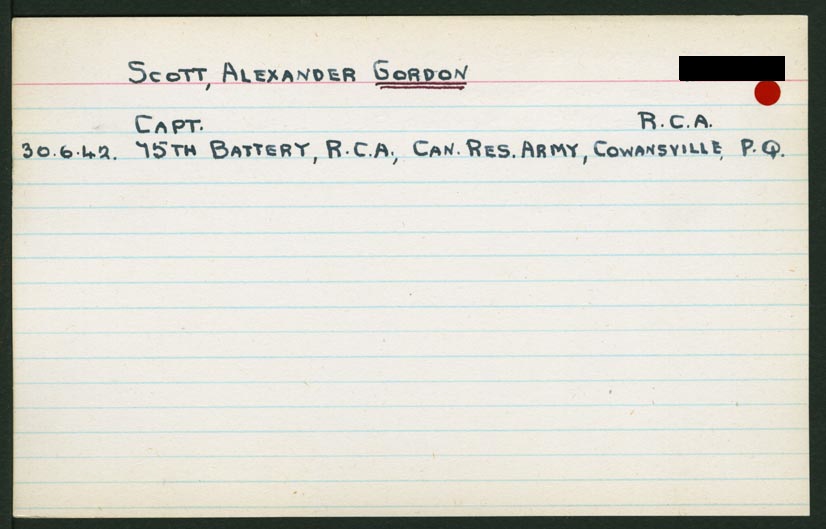 SCOTT, ALEXANDER GORDON
CAPT. R.C.A.
30.6.42. 75TH BATTERY, R.C.A., CAN. RES. ARMY, COWANSVILLE, P.Q.